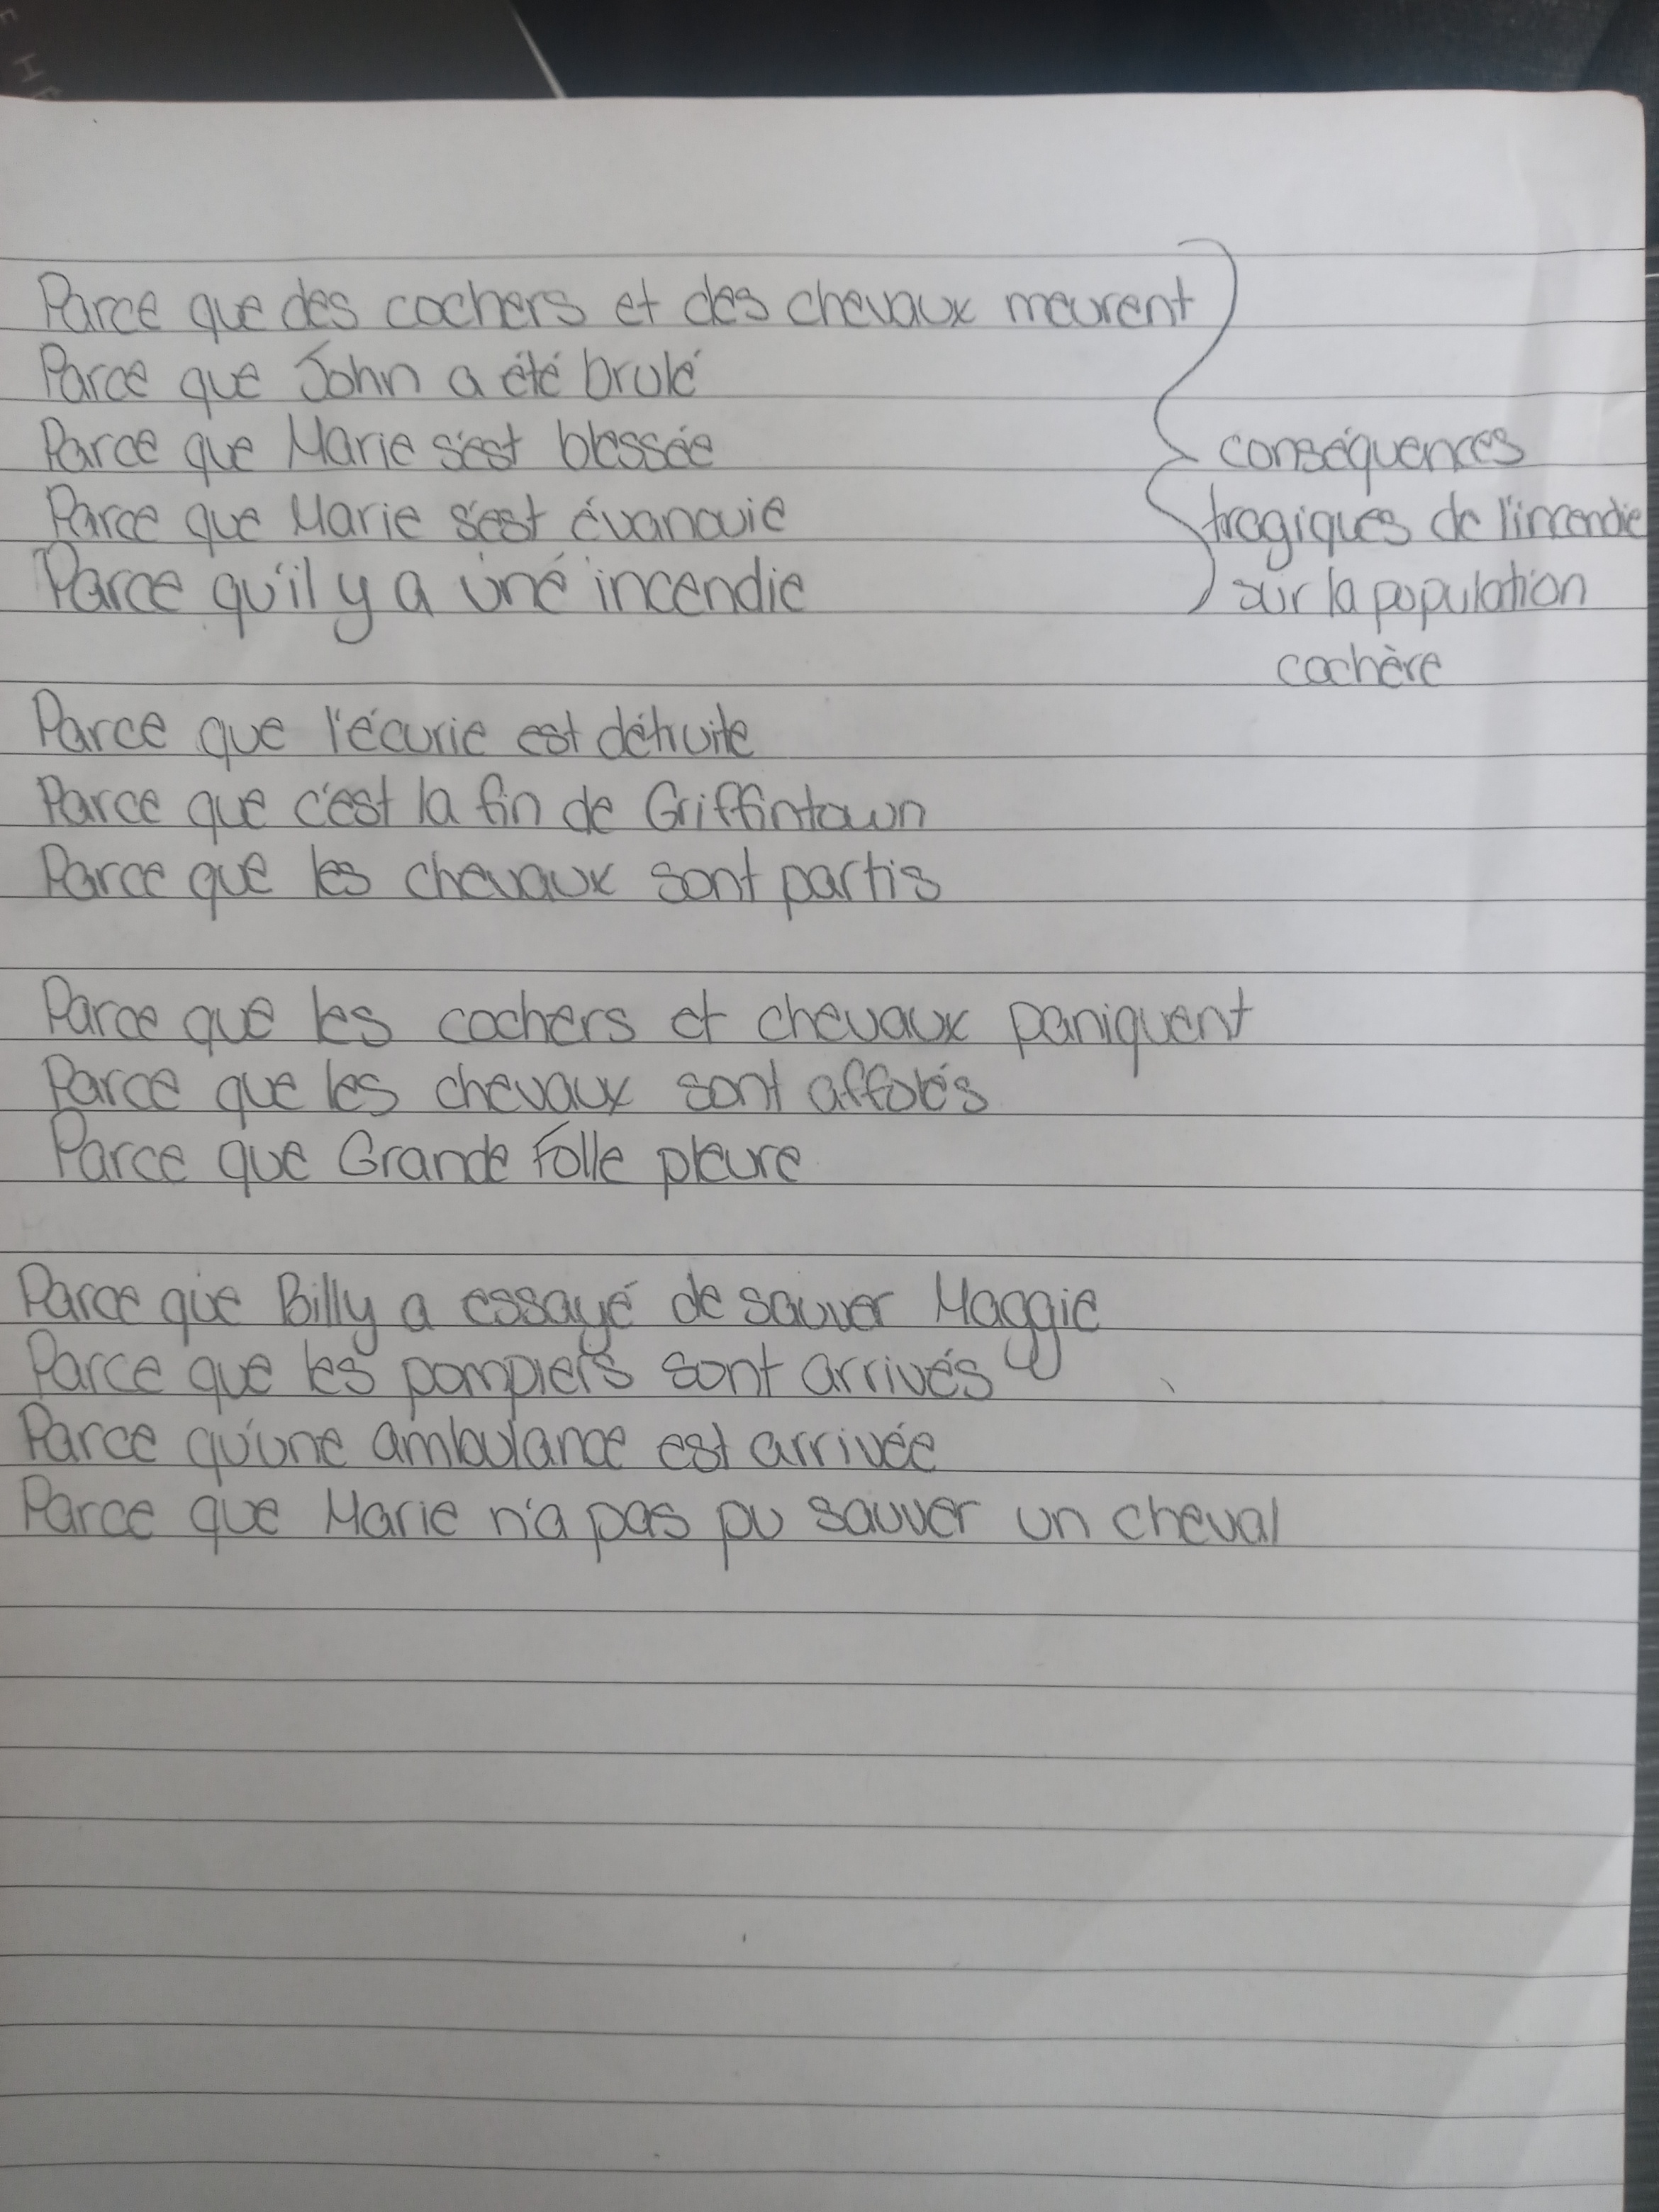 Parce que des cochers et des chevaux meurent
Parce que John a été brulé
Parce que Marie s'est blessée
Parce que Marie s'est évanouie
Parce qu'il y a une incendie
conséquences
tragiques de l'incendie
sur la population
cochère
Parce que l'écurie est détruite
Parce que c'est la fin de Griffintown
Parce que les chevaux sont partis
Parce que les cochers et chevaux paniquent
Parce que les chevaux sont affolés
Parce que Grande Folle pleure
Parce que Billy a essayé de sauver Maggie
Parce que les pompiers sont arrivés
Parce qu'une ambulance est arrivée
Parce que Marie n'a pas pu sauver un cheval